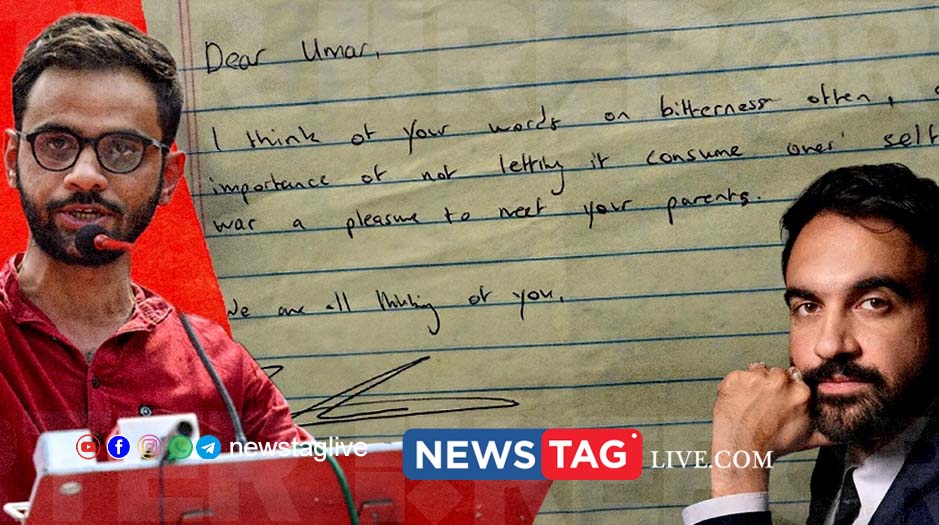 Dear Umar,
I think of your words on bitterness often,
importance of not letting it consume ones' self
was a pleasure to meet your parents.
We are all thinking of you.
newstaglive
NEWS TAG LIVE.COM